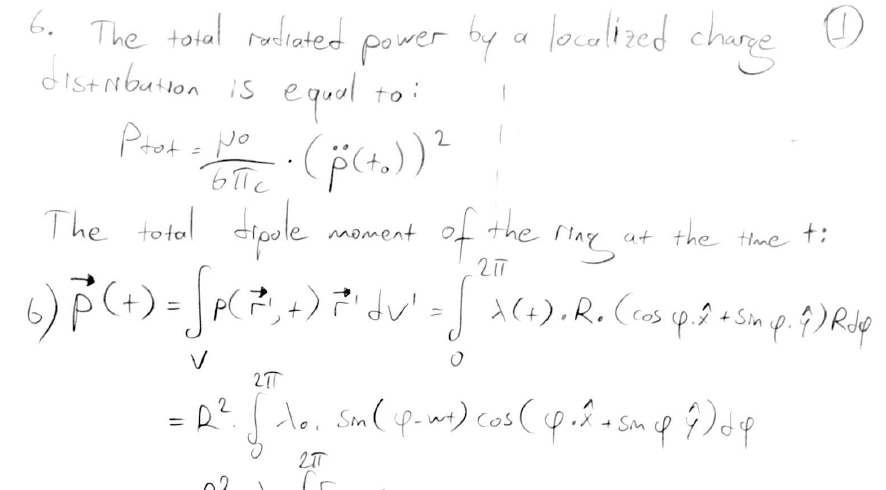 6. The total radiated power by a localized charge ①
distribution is equal to:
Ptot = μ0/6πc · (p̈(t₀))²
The total dipole moment of the ring at the time t:
b) p⃗(t) = ∫_V ρ(r⃗', t) r⃗' dv' = ∫_0^{2π} λ(t) · R · (cos φ · x̂ + sin φ · ŷ) R dφ
= R² · ∫_0^{2π} λ₀ · sin(φ - wt) cos(φ · x̂ + sin φ ŷ) dφ
2π